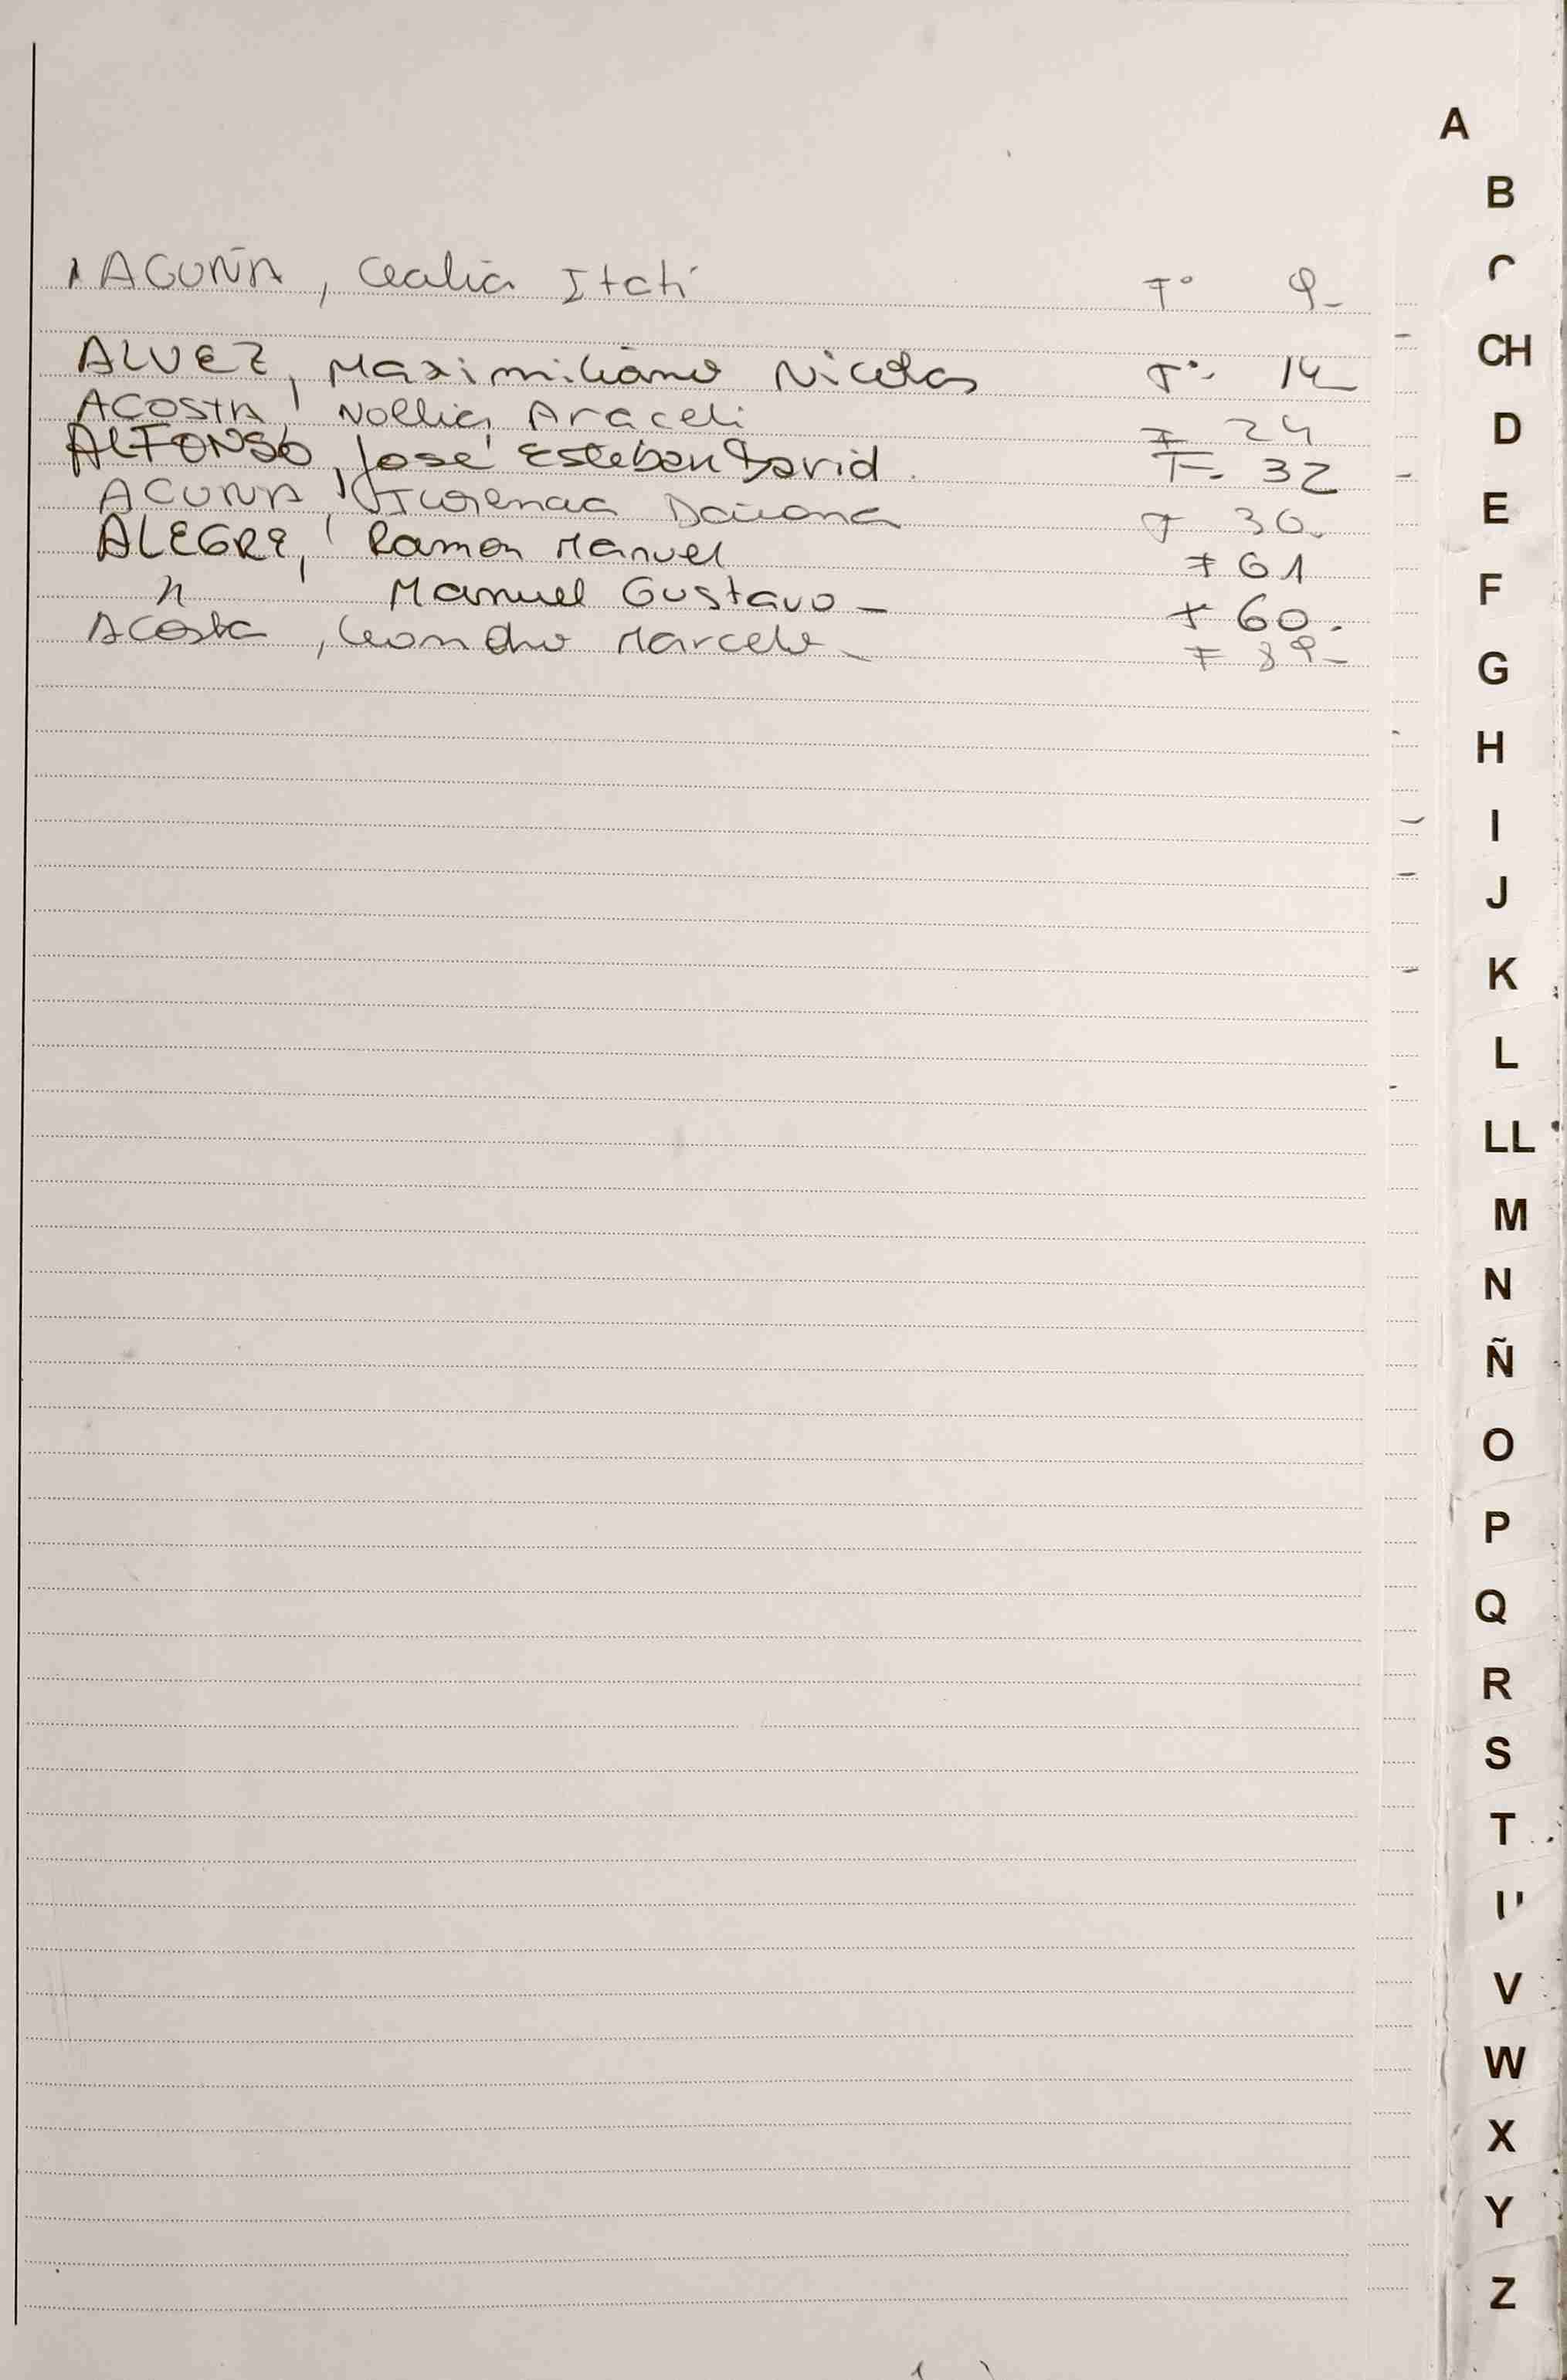 ACUÑA, Cealia Itatí F° 9-
ALVEZ, Maximiliano Nicolas F°- 14
ACOSTA, Noelia Araceli F 24
ALFONSO, José Esteban David. F- 32
ACUÑA, Florencia Daiana F 30.
ALEGRE, Ramon Manuel F 61
" Manuel Gustavo - F 60.
Acosta, Leandro Marcelo - F 39-
A
B
C
CH
D
E
F
G
H
I
J
K
L
LL
M
N
Ñ
O
P
Q
R
S
T
U
V
W
X
Y
Z